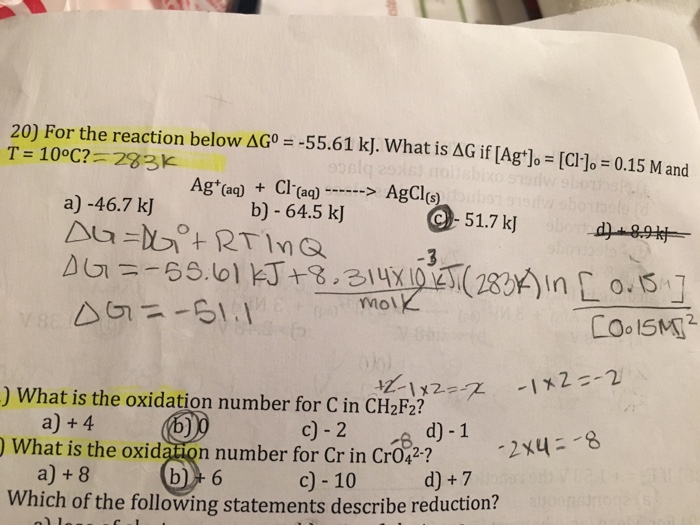 20) For the reaction below ΔG⁰ = -55.61 kJ. What is ΔG if [Ag⁺]₀ = [Cl⁻]₀ = 0.15 M and
T = 10⁰C? = 283K
Ag⁺(aq) + Cl⁻(aq) ------> AgCl(s)
a) -46.7 kJ b) - 64.5 kJ c) - 51.7 kJ d) + 8.9 kJ
ΔG = ΔG° + RTlnQ
ΔG = -55.61 KJ + 8.314x10⁻³ KJ/molK (283K) ln [0.15M]/[0.15M]²
ΔG = -51.1
+2 -1x2=-2 -1x2=-2
) What is the oxidation number for C in CH₂F₂?
a) + 4 b) 0 c) - 2 d) - 1
-8 -2x4=-8
) What is the oxidation number for Cr in CrO₄²⁻?
a) + 8 b) + 6 c) - 10 d) + 7
Which of the following statements describe reduction?